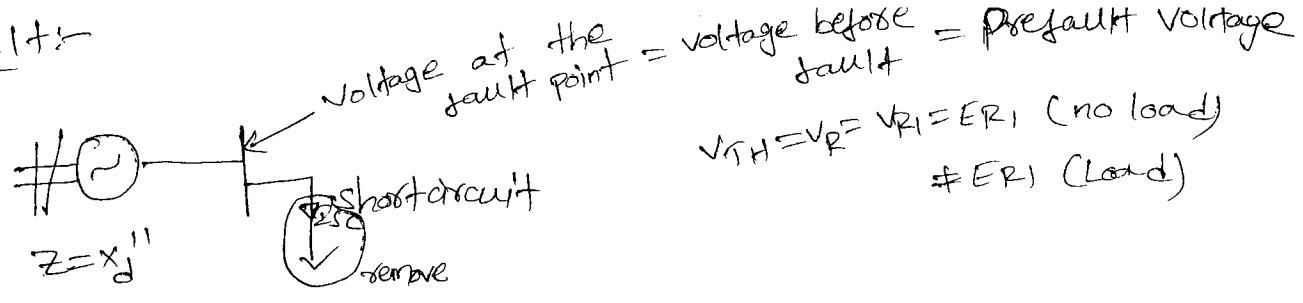 lt:-
Voltage at the fault point = voltage before fault = Prefault Voltage
VTH = VR = VR1 = ER1 (no load)
≠ ER1 (Load)
~
short circuit
Z = Xd''
remove